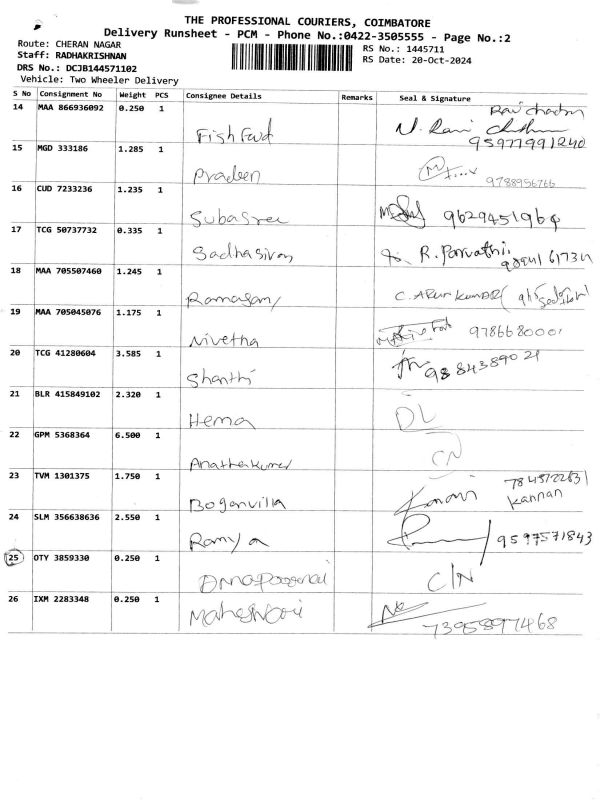 THE PROFESSIONAL COURIERS, COIMBATORE
Delivery Runsheet - PCM - Phone No.:0422-3505555 - Page No.:2
Route: CHERAN NAGAR
RS No.: 1445711
Staff: RADHAKRISHNAN
RS Date: 20-Oct-2024
DRS No.: DCJB144571102
Vehicle: Two Wheeler Delivery
S No Consignment No Weight PCS Consignee Details Remarks Seal & Signature
14 MAA 866936092 0.250 1 Fish Food N. Ravi 95977991240
15 MGD 333186 1.285 1 Pradeen 9788956766
16 CUD 7233236 1.235 1 Subasree 9629451964
17 TCG 50737732 0.335 1 Sadhasivan R. Parvathi
18 MAA 705507460 1.245 1 Ramasamy C. ARUN KUMAR
19 MAA 705045076 1.175 1 Nivetha 9786680001
20 TCG 41280604 3.585 1 Shanthi 9884389021
21 BLR 415849102 2.320 1 Hema DL
22 GPM 5368364 6.500 1 Ananthakumar CN
23 TVM 1301375 1.750 1 Boganvilla Kannan
24 SLM 356638636 2.550 1 Ramya 9597571843
25 OTY 3859330 0.250 1 C/N
26 IXM 2283348 0.250 1 Maheshwari 7395897468